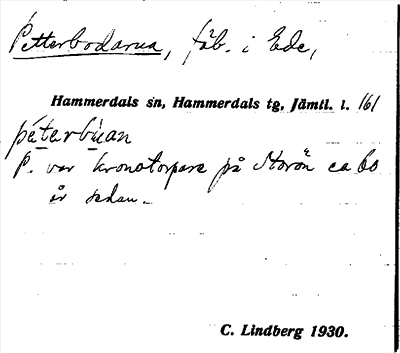 Petterbodarna, fäb. i Ede,
Hammerdals sn, Hammerdals tg, Jämtl. l. 161
pétarbùan
P. var kronotorpare på Storön ca 60
år sedan.
C. Lindberg 1930.